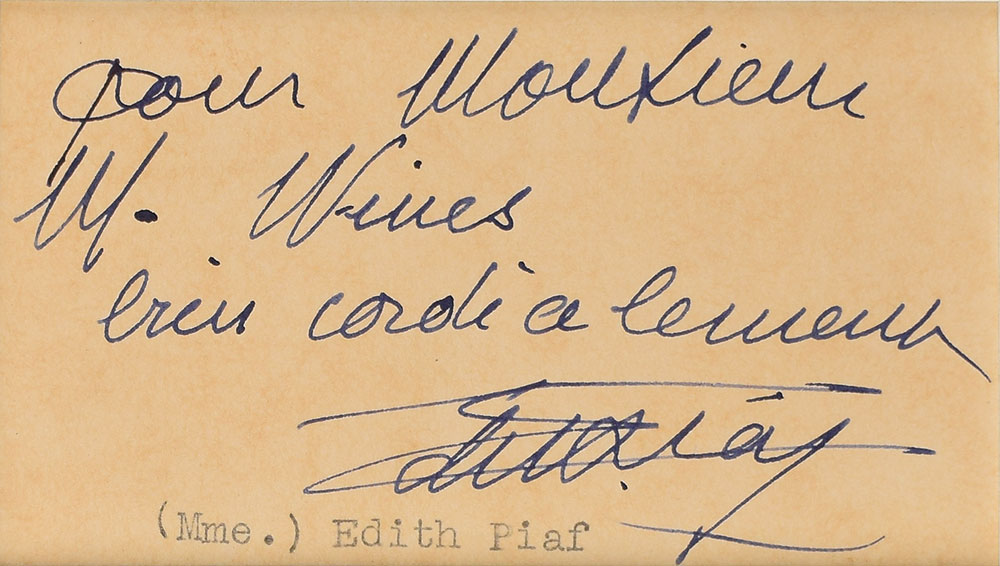 pour Monsieur
M. Wines
bien cordialement
Edith Piaf
(Mme.) Edith Piaf